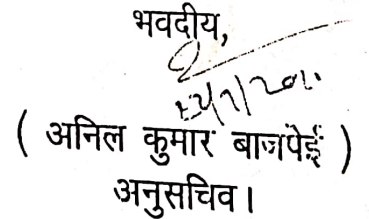 भवदीय,
( अनिल कुमार बाजपेई )
अनुसचिव।